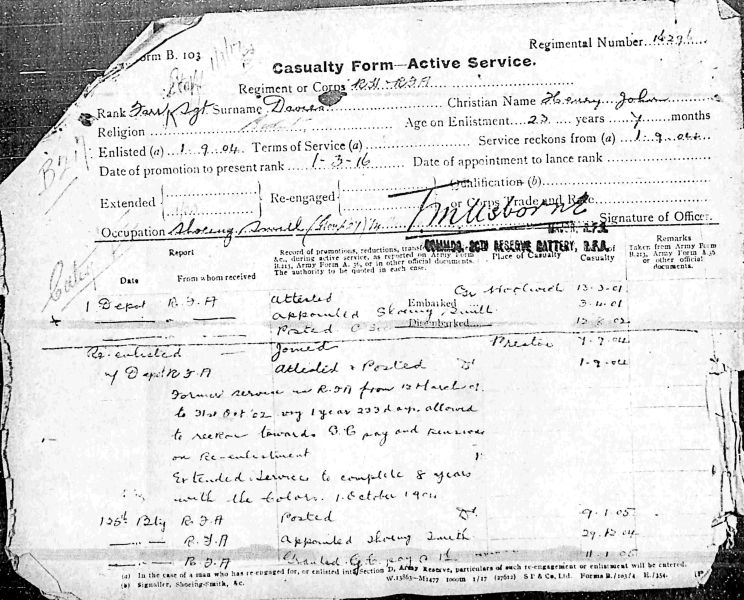 Form B. 103
Casualty Form—Active Service.
Regimental Number
Regiment or Corps RH-RFA
Rank Farr Sgt Surname Christian Name Henry John
Religion Age on Enlistment 23 years 7 months
Enlisted (a) 1.9.04 Terms of Service (a) Service reckons from (a) 1.9.04
Date of promotion to present rank 1-3-16 Date of appointment to lance rank
Extended Re-engaged Qualification (b)
or Corps Trade and Rate
Occupation Shoeing Smith Signature of Officer.
COMMDG. RESERVE BATTERY, R.F.A.
Report
Date From whom received
Record of promotions, reductions, transfers,
&c., during active service, as reported on Army Form
B.213, Army Form A. 36, or in other official documents.
The authority to be quoted in each case.
Place of Casualty
Casualty
Remarks
Taken from Army Form
B.213, Army Form A.36
or other official
documents.
1 Depot R.F.A Attested Embarked Woolwich 13-3-01
appointed Shoeing Smith 3-4-01
Posted Disembarked
Re-enlisted Joined Preston 1-9-04
4 Depot RFA Attested & Posted 1-9-04
Former service in R.F.A from 13 March 01
to 31st Oct '02 1 year 233 days allowed
to reckon towards G.C pay and pension
on Re-enlistment
Extended Service to complete 8 years
with the Colors. 1 October 1904
Bty R.F.A Posted 9-1-05
R.F.A Appointed Shoeing Smith 29.12.04
R.F.A Granted G.C. pay
(a) In the case of a man who has re-engaged for, or enlisted into Section D, Army Reserve, particulars of such re-engagement or enlistment will be entered.
(b) Signaller, Shoeing-Smith, &c. W.13863—M1477 1000m 1/17 (27612) S P & Co., Ltd. Forms B./103/4 E./354.